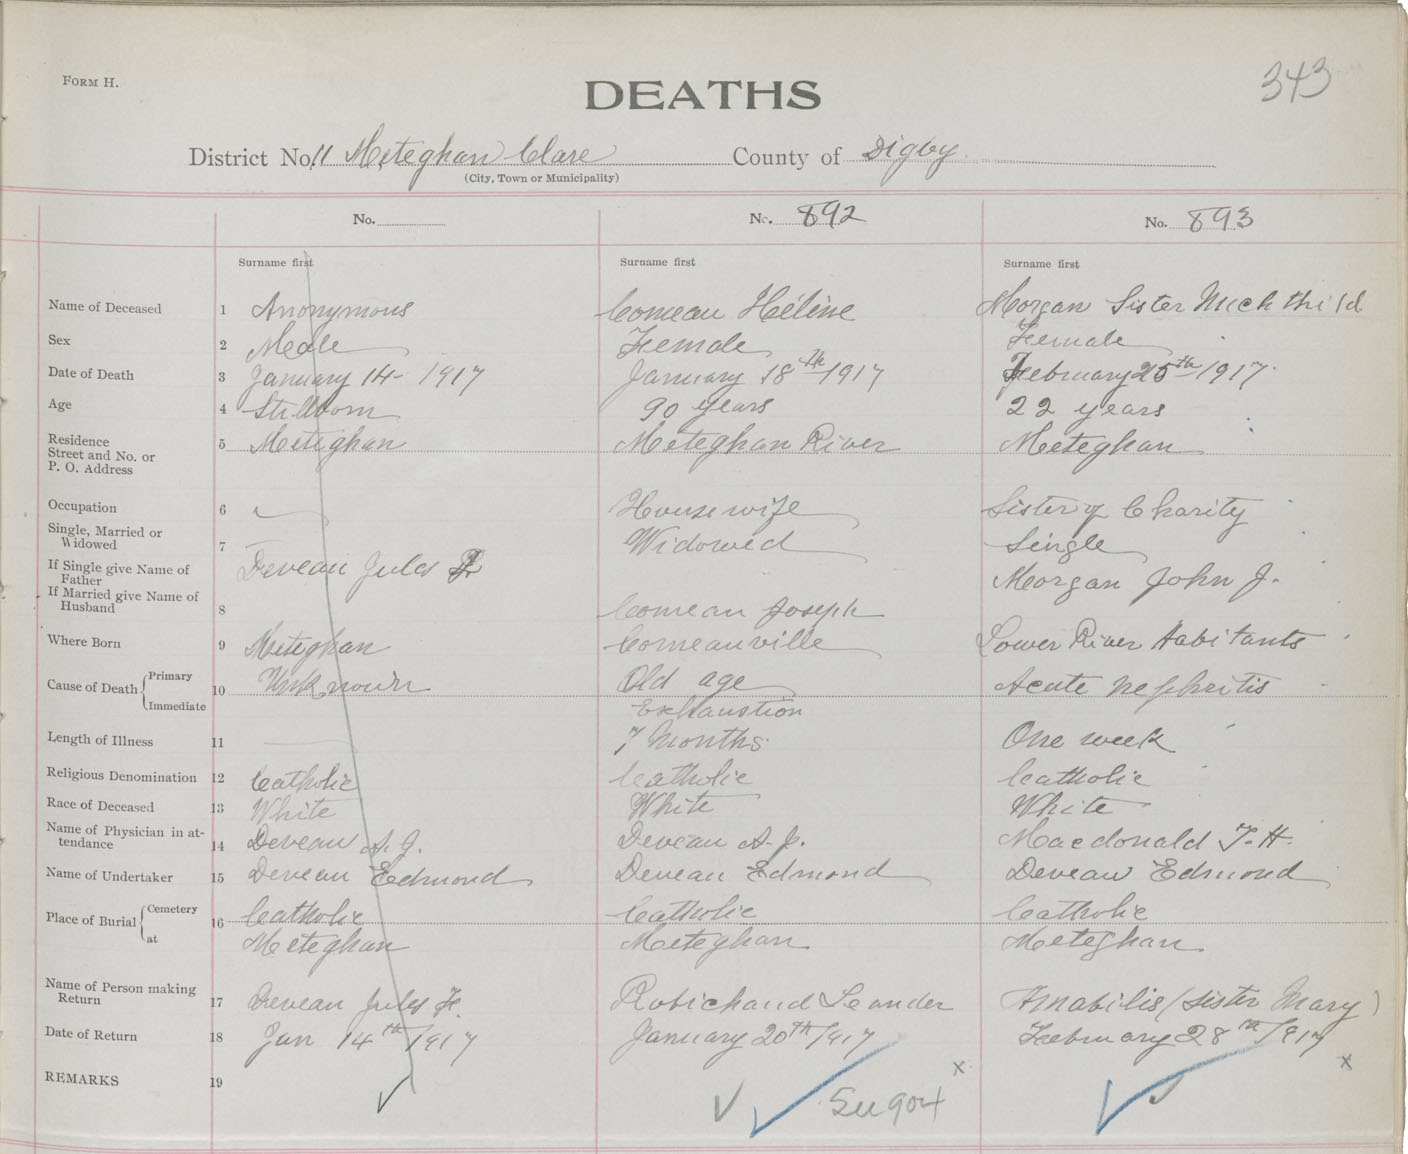 FORM H.
DEATHS
343
District No. 11 Meteghan Clare County of Digby
(City, Town or Municipality)
No. No. 892 No. 893
Surname first Surname first Surname first
Name of Deceased 1 Anonymous Comeau Héléne Morgan Sister Mechthild
Sex 2 Male Female Female
Date of Death 3 January 14 - 1917 January 18th 1917 February 25th 1917
Age 4 Stillborn 90 years 22 years
Residence
Street and No. or
P. O. Address 5 Meteghan Meteghan River Meteghan
Occupation 6 Housewife Sister of Charity
Single, Married or
Widowed 7 Widowed Single
If Single give Name of
Father Deveau Jules Morgan John J.
If Married give Name of
Husband 8 Comeau Joseph
Where Born 9 Meteghan Comeauville Lower River Habitants
Cause of Death Primary 10 Unknown Old age Acute nephritis
Immediate Exhaustion
Length of Illness 11 7 Months One week
Religious Denomination 12 Catholic Catholic Catholic
Race of Deceased 13 White White White
Name of Physician in at-
tendance 14 Deveau A. J. Deveau A. J. Macdonald T. H.
Name of Undertaker 15 Deveau Edmond Deveau Edmond Deveau Edmond
Place of Burial Cemetery 16 Catholic Catholic Catholic
at Meteghan Meteghan Meteghan
Name of Person making
Return 17 Deveau Jules F. Robichaud Leander Amabilis (Sister Mary)
Date of Return 18 Jan 14th/1917 January 20th/1917 February 28th/1917
REMARKS 19
x x